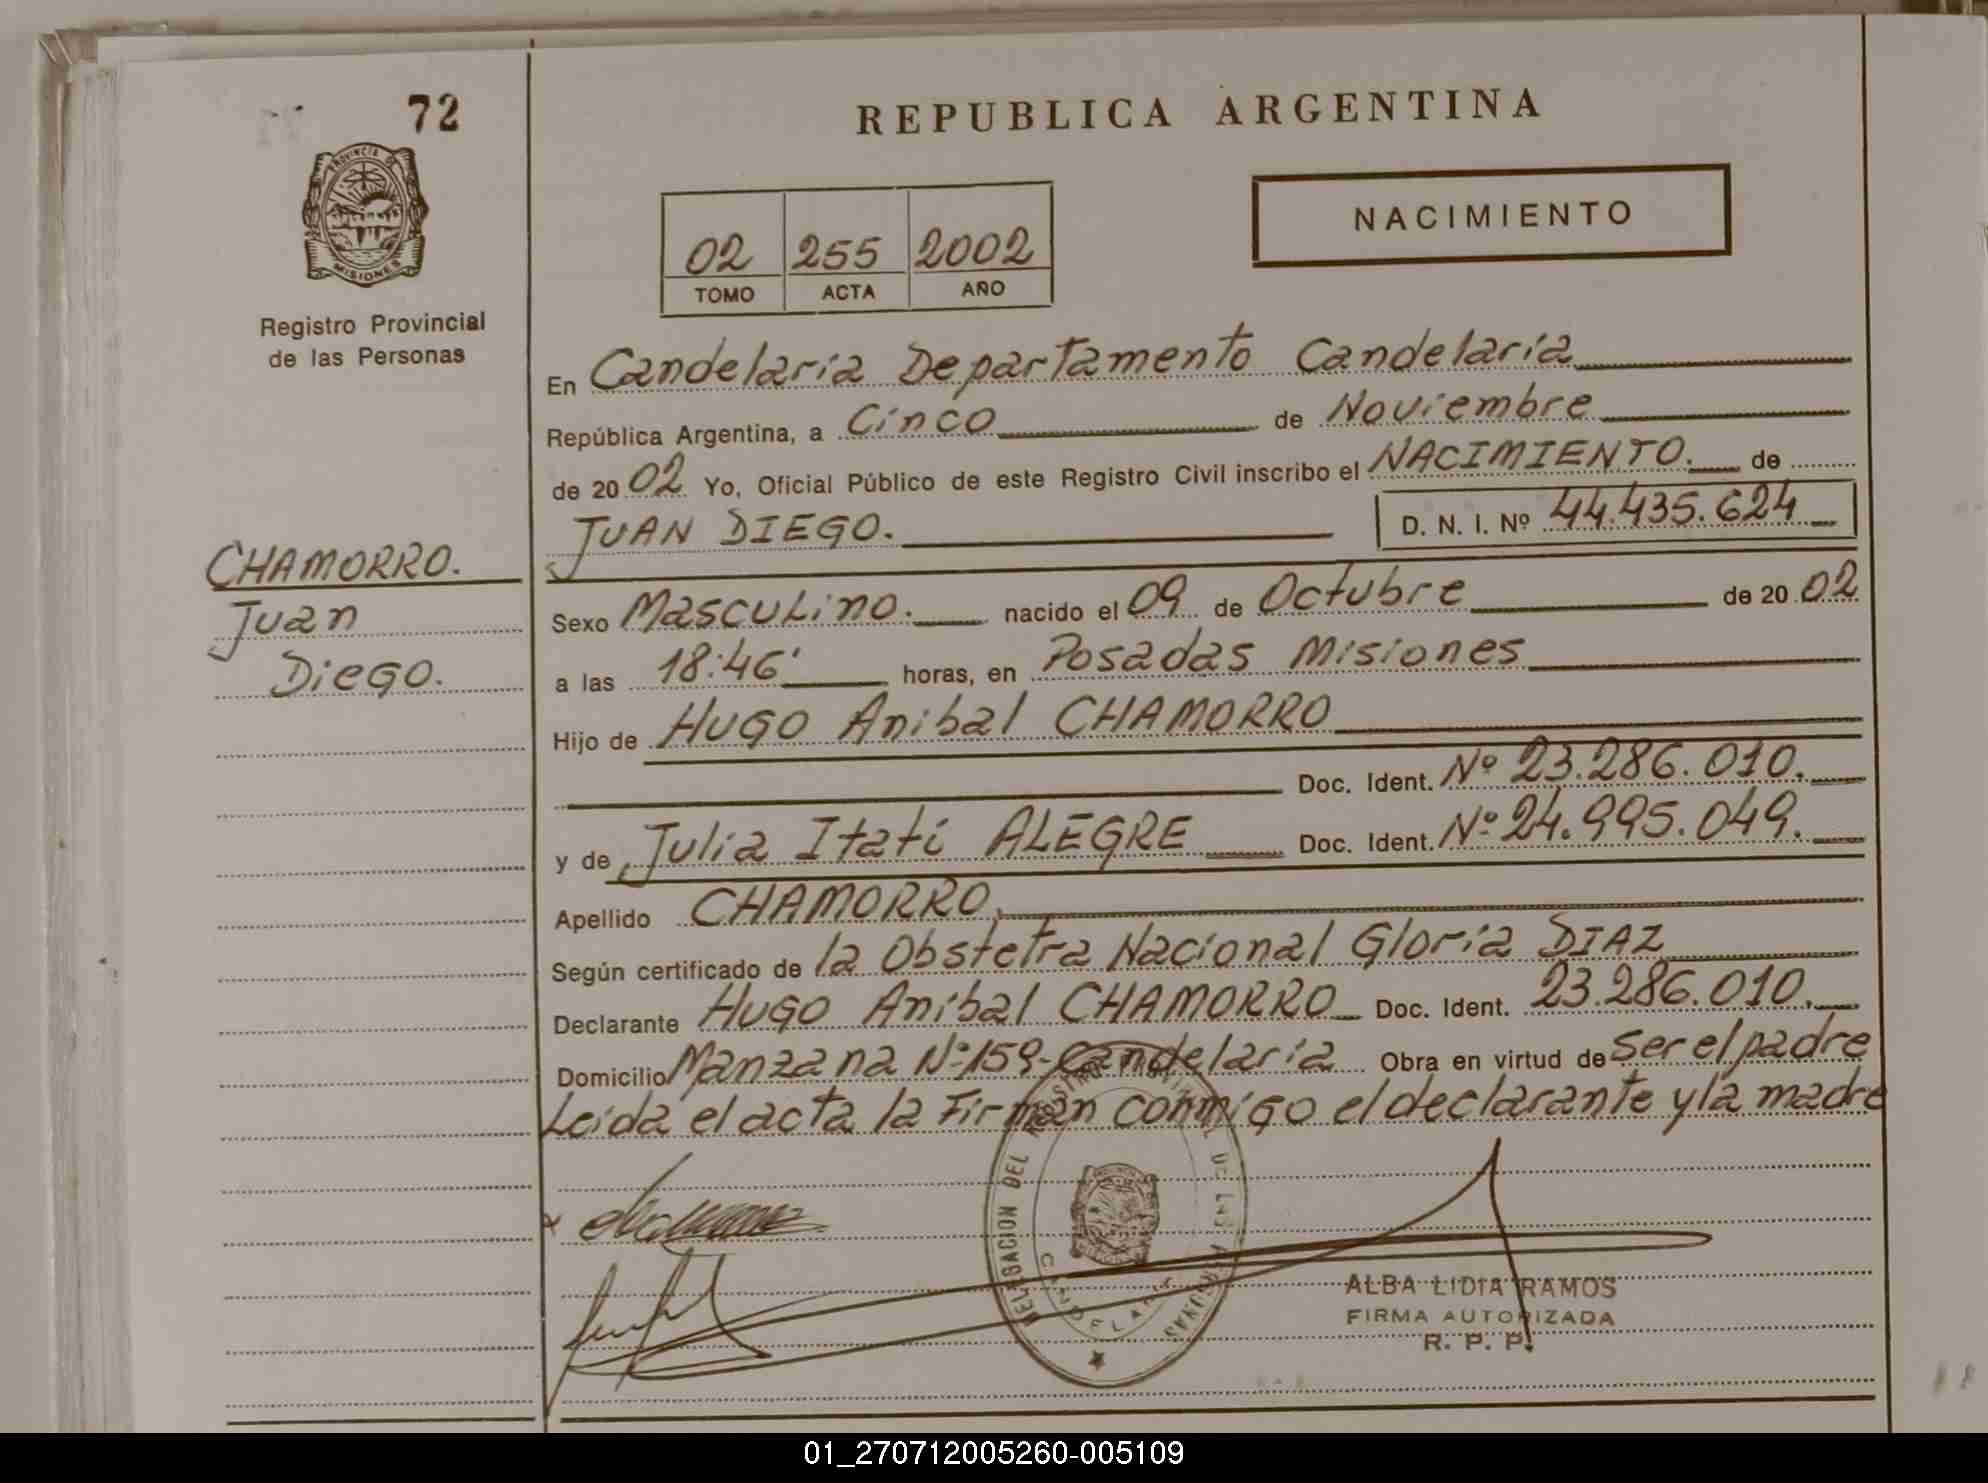 72
REPUBLICA ARGENTINA
PROVINCIA DE
MISIONES
NACIMIENTO
02 255 2002
TOMO ACTA AÑO
Registro Provincial
de las Personas
En Candelaria Departamento Candelaria
República Argentina, a Cinco de Noviembre
de 2002 Yo, Oficial Público de este Registro Civil inscribo el NACIMIENTO. de
JUAN DIEGO. D. N. I. Nº 44.435.624
CHAMORRO.
Juan
Diego.
Sexo Masculino. nacido el 09 de Octubre de 2002
a las 18:46' horas, en Posadas Misiones
Hijo de Hugo Anibal CHAMORRO
Doc. Ident. Nº 23.286.010.
y de Julia Itatí ALEGRE Doc. Ident. Nº 24.995.049.
Apellido CHAMORRO.
Según certificado de la Obstetra Nacional Gloria DIAZ
Declarante Hugo Anibal CHAMORRO Doc. Ident. 23.286.010.
Domicilio Manzana Nº 159-Candelaria Obra en virtud de ser el padre
Leida el acta la Firman conmigo el declarante y la madre
DELEGACION DEL REGISTRO PROVINCIAL DE LAS PERSONAS
CANDELARIA
ALBA LIDIA RAMOS
FIRMA AUTORIZADA
R. P. P.
01_270712005260-005109